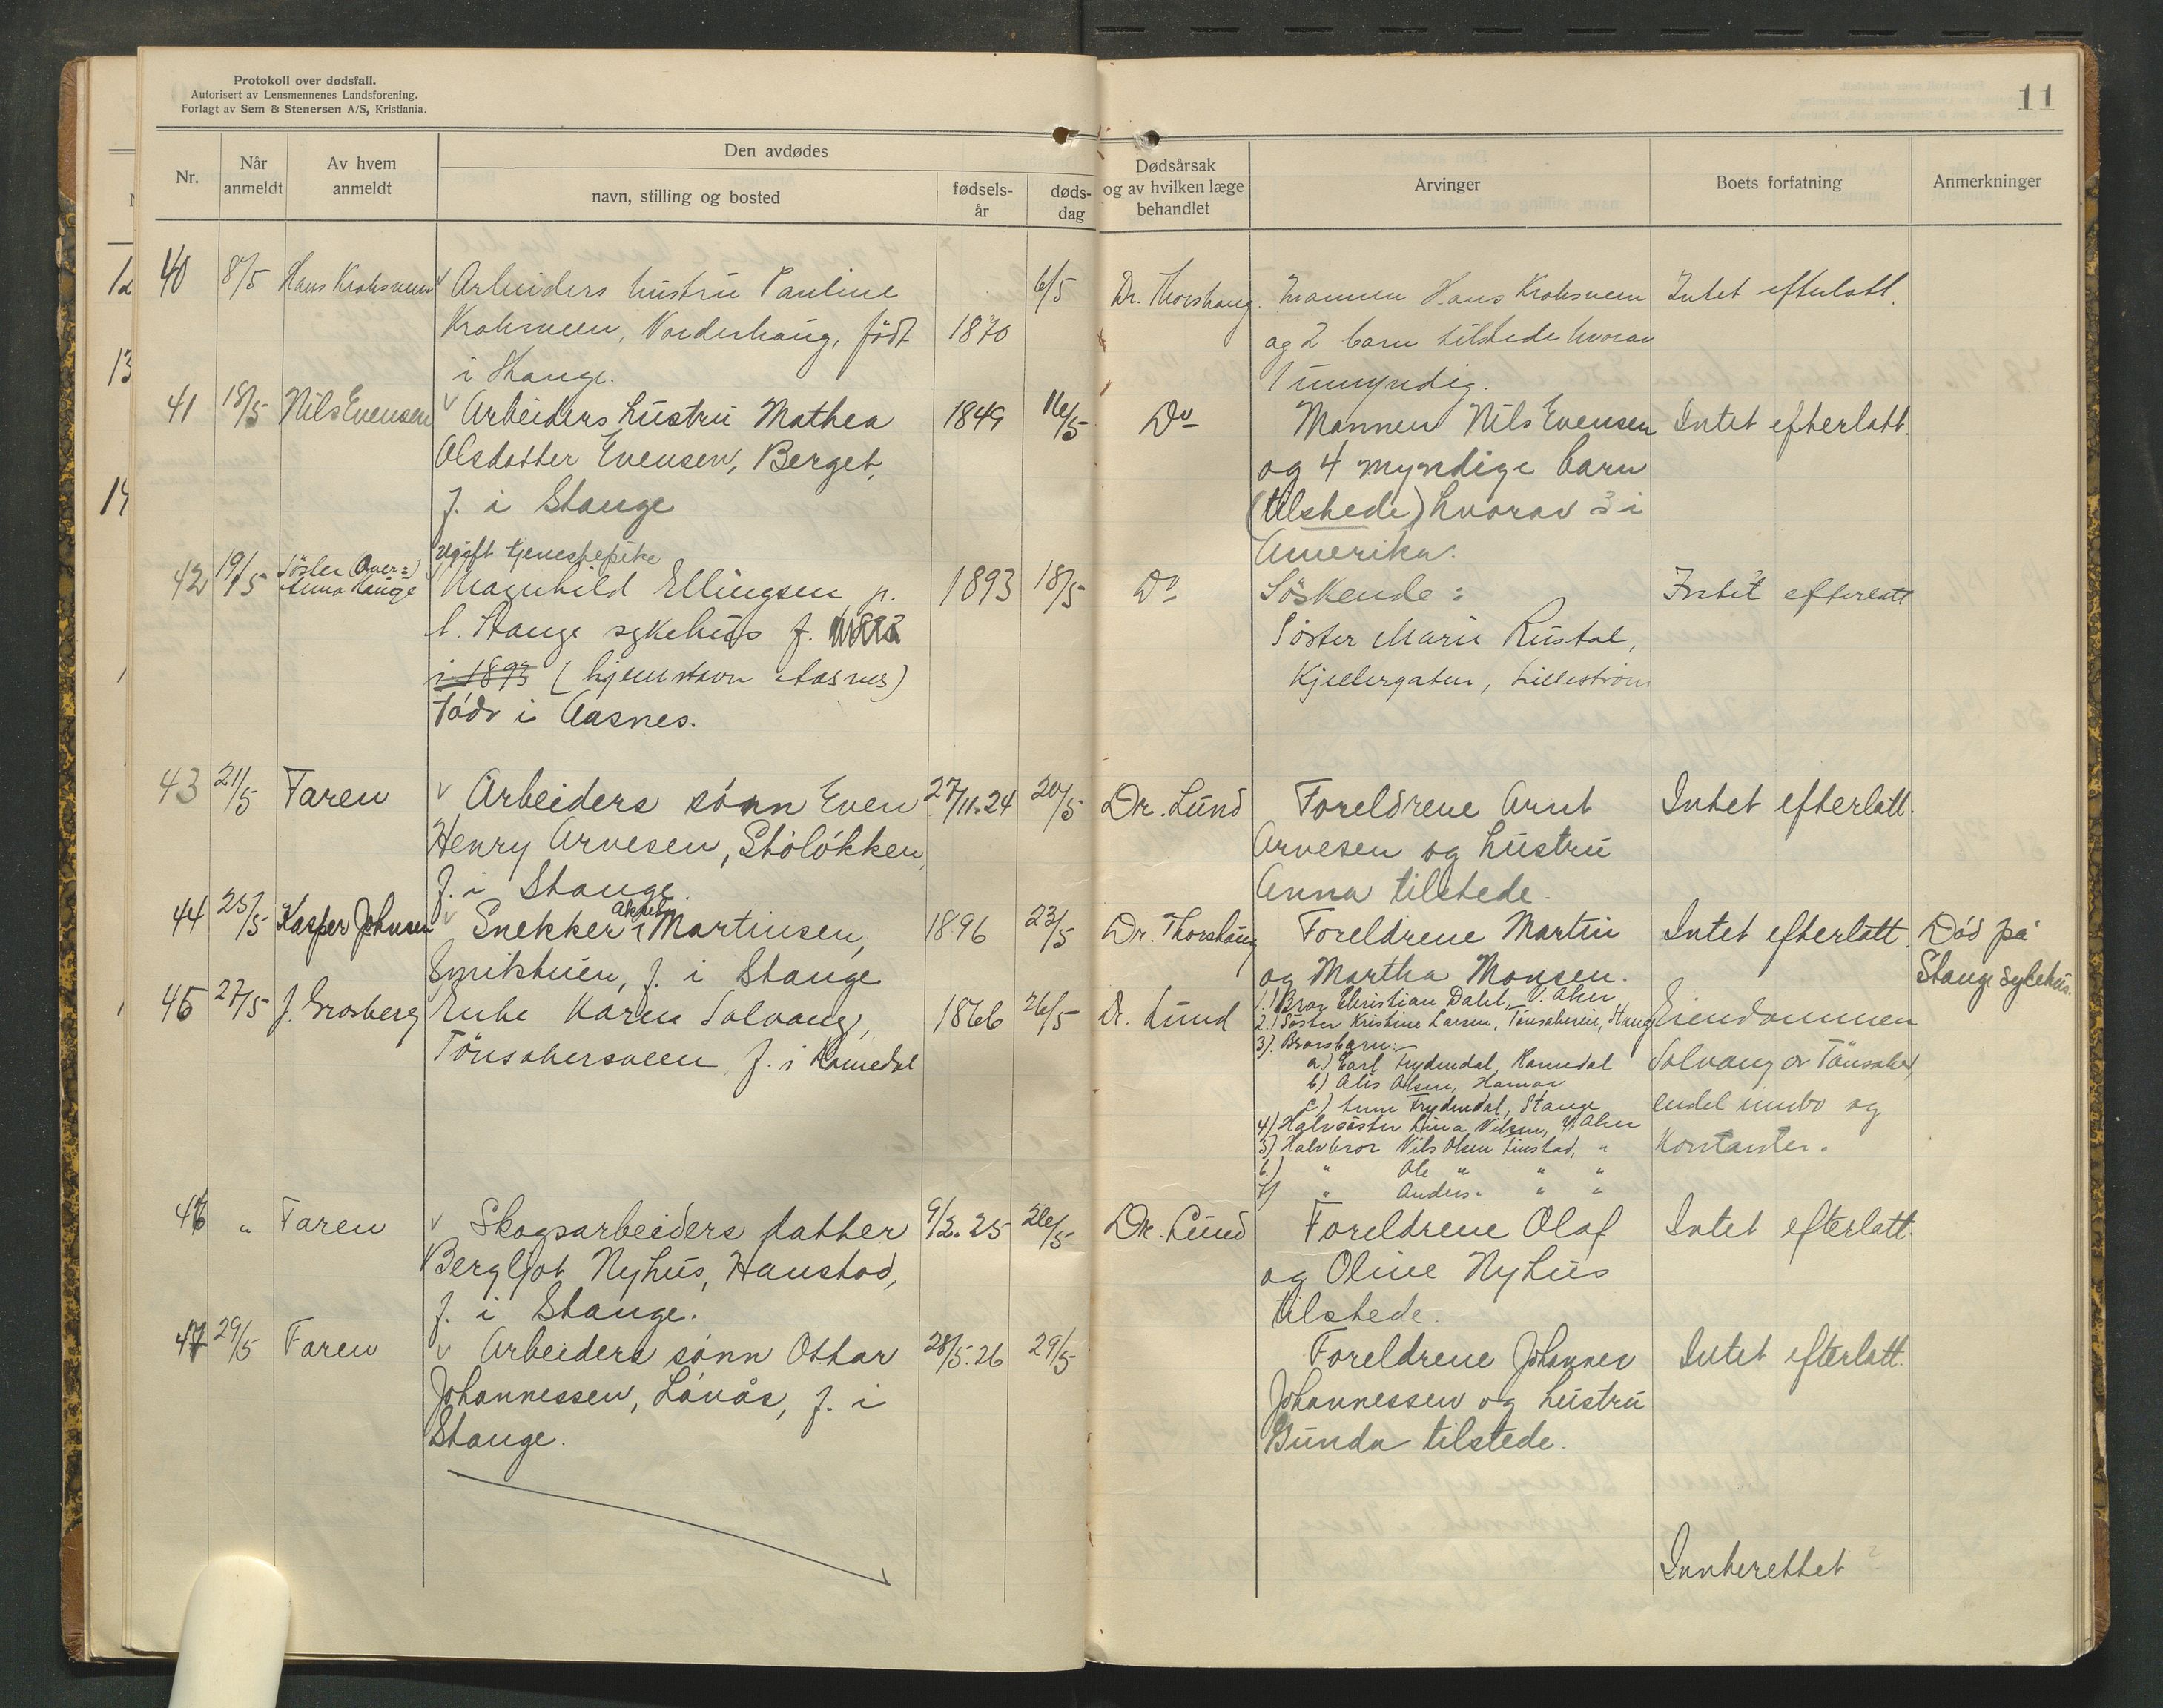 Protokoll over dødsfall.
Autorisert av Lensmennenes Landsforening.
Forlagt av Sem & Stenersen A/S, Kristiania.
11
Nr.
Når anmeldt
Av hvem anmeldt
Den avdødes
navn, stilling og bosted
fødsels-år
døds-dag
Dødsårsak og av hvilken læge behandlet
Arvinger
Boets forfatning
Anmerkninger
12
13
14
40 8/5 Hans Kroksveen Arbeiders hustru Pauline 6/5 Dr. Thorshaug Mannen Hans Kroksveen Intet efterlatt.
Kroksveen, Vorderhaug, født 1870 og 2 barn tilstede hvorav
i Stange. 1 umyndig.
41 18/5 Nils Evensen Arbeiders hustru Mathea 1849 16/5 Do Mannen Nils Evensen Intet efterlatt.
Olsdatter Evensen, Berget, og 4 myndige barn
f. i Stange (tilstede) hvorav 3 i
Amerika.
Ugift tjenestepike
42 19/5 Söster Anna Hauge Magnhild Ellingsen p. 1893 18/5 Do Söskende: Intet efterlatt
t. Stange sykehus f. Söster Marie Rustad,
i 1893 (hjemstavn Aasnes) Kjellergaten, Lilleström
Född i Aasnes.
43 21/5 Faren Arbeiders sönn Even 27/11.24 20/5 Dr. Lund Foreldrene Arnt Intet efterlatt.
Henry Arvesen, Stölökken, Arvesen og hustru
f. i Stange. Anna tilstede.
44 25/5 Kasper Johnsen Snekker Martinsen, 1896 23/5 Dr. Thorshaug Foreldrene Martin Intet efterlatt. Död på
Smikstuen, f. i Stange og Martha Monsen. Stange sykehus.
45 27/5 J. Grosberg Enke Karen Solvang, 1866 26/5 Dr. Lund 1.) Bror Christian Dahl, V. Aker Eiendommen
2.) Söster Kristine Larsen, Tönsakersveen, Stange
Tönsakersveen f. i Romedal 3). Brorsbarn:
a) Carl Frydendal, Romedal Solvang av Tönsaker,
b) Alis Olsen, Hamar
c) Frydendal, Stange endel innbo og
4) Halvsöster Lina Nilsen, V. Aker
5) Halvbror Nils Olsen " kontanter.
6) " Ole " " "
7) " Anders " " "
46 " Faren Skogsarbeiders datter 9/2.25 26/5 Dr. Lund Foreldrene Olaf Intet efterlatt.
Bergljot Nyhus, Hanstad, og Oline Nyhus
f. i Stange. tilstede.
47 29/5 Faren Arbeiders sönn Ottar 28/5.26 29/5 Foreldrene Johannes Intet efterlatt.
Johannessen, Lövås, f. i Johannessen og hustru
Stange. Gunda tilstede.
Innberettet